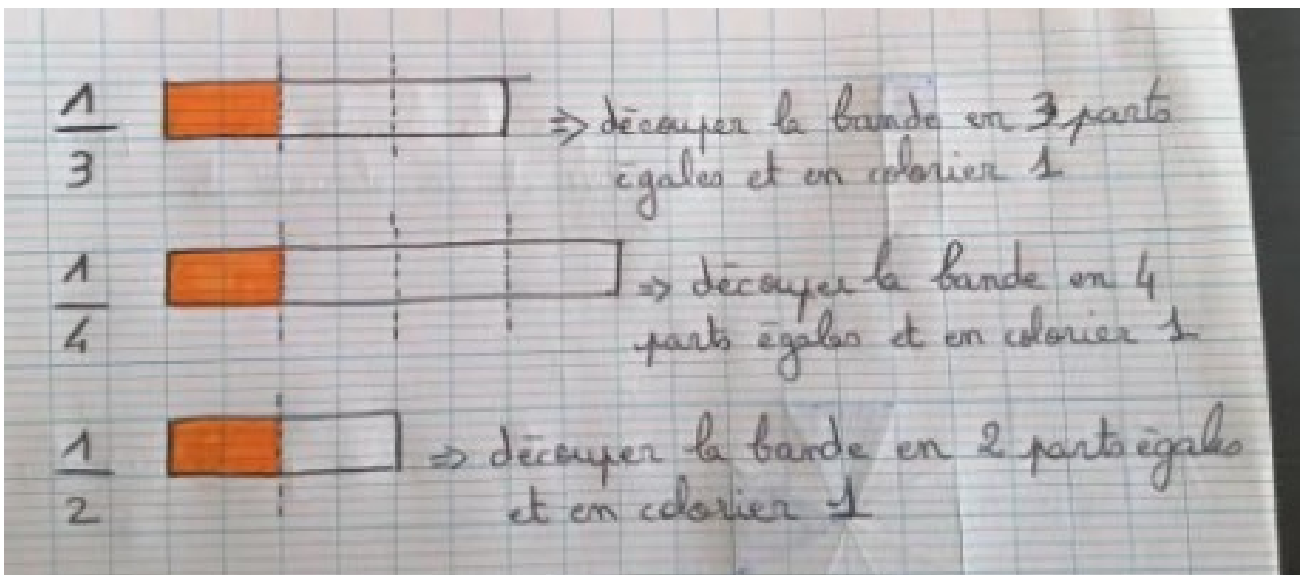 1/3 ⇒ découper la bande en 3 parts
égales et en colorier 1
1/4 ⇒ découper la bande en 4
parts égales et en colorier 1
1/2 ⇒ découper la bande en 2 parts égales
et en colorier 1